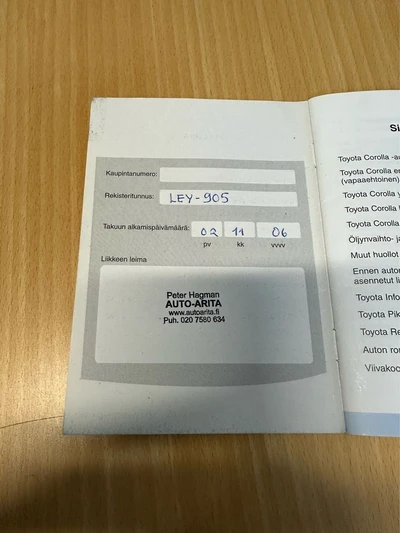 Kaupintanumero:
Rekisteritunnus: LEY-905
Takuun alkamispäivämäärä: 02 11 06
pv kk vvvv
Liikkeen leima
Peter Hagman
AUTO-ARITA
www.autoarita.fi
Puh. 020 7580 634
Si
Toyota Corolla -au
Toyota Corolla er
(vapaaehtoinen)
Toyota Corolla y
Toyota Corolla
Toyota Corolla
Öljynvaihto- ja
Muut huollot
Ennen autor
asennetut li
Toyota Info
Toyota Pik
Toyota Re
Auton ro
Viivakoo